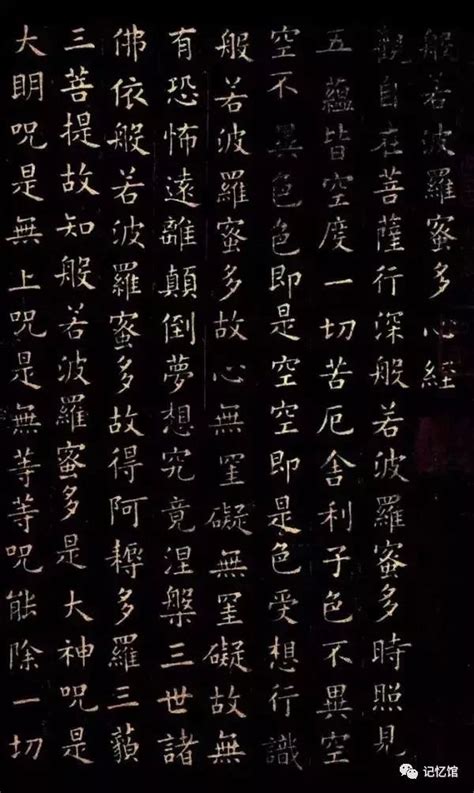 般若波羅蜜多心経
觀自在菩薩行深般若波羅蜜多時照見
五蘊皆空度一切苦厄舎利子色不異空
空不異色色即是空空即是色受想行識
般若波羅蜜多故心無罣礙無罣礙故無
有恐怖遠離顛倒夢想究竟涅槃三世諸
佛依般若波羅蜜多故得阿耨多羅三藐
三菩提故知般若波羅蜜多是大神呪是
大明呪是無上呪是無等等呪能除一切
记忆馆